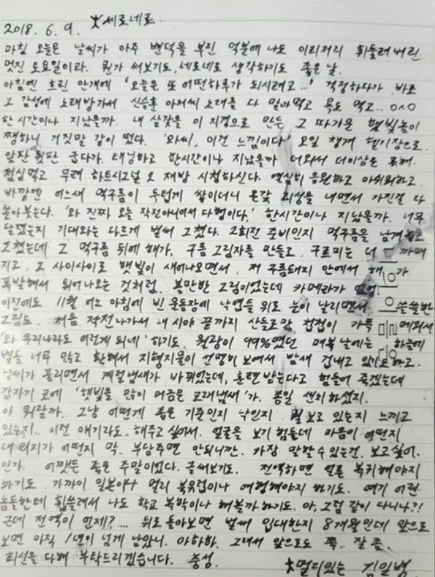 2018. 6. 9. ☆세로네로
마침 오늘은 날씨가 아주 변덕을 부린 덕분에 나도 이리저리 휘둘려버린
멋진 토요일이라. 뭔가 써보기도, 네로네로 생각하기도 좋은 날.
아침엔 흐린 안개에 '오늘은 또 어떤하루가 되시려고...' 걱정하다가 바로
그 감성에 노래방가서 신승훈 아저씨 노래를 다 말아먹고 목도 먹고.. ㅇㅅㅇ
한시간이나 지났을까. 내 살갗을 이 지경으로 만든 그 따가운 햇빛놈이
쨍하니 거짓말 같이 떴다. '와씨, 이건 느낌이다' 요일 잡게 연기장으로
앞판 뒤판 굽다가. 태닝하고 한시간이나 지났을까 더워서 더이상은 못해.
점심먹고 무려 하트시그널 오 재방 시청하신다. 열심히 응원하고 아쉬워하고.
바깥엔 어느새 먹구름이 두텁게 쌓이더니 온갖 괴상을 내면서 가진걸 다
쏟아붓는다. '와 진짜 오늘 작전아니어서 다행이다.' 한시간이나 지났을까. 너무
담갔는지 기대와는 다르게 벌써 그쳤다. 2회전 준비인지 먹구름을 남겨놓고
그쳤는데 그 먹구름 뒤에 해가. 구름 그림자를 만들고, 구르미는 더 까매
지고, 그 사이사이로 햇빛이 새어나오면서, 저 구름돼지 안에서 해가
폭발해서 튀어나오는 것처럼. 볼만한 그림이었는데 카메라가 없
이전에도 11월 어느 아침에 빈 운동장에 낙엽들 위로 눈이 날리면서 쓸쓸한
그림도. 처음 작전나가서 내 시야 끝까지 산들로만 첩첩이 가득 메워져
'와 우리나라도 이렇게 되네' 하기도. 월광이 99%였던 매복날에는 하늘에
별도 너무 많고 환해서 지형지물이 선명히 보여서 밤새 겁내고 있기도 하고.
날씨가 풀리면서 계절냄새가 바뀌었는데, 훈련받는다고 힘들어 죽겠는데
갑자기 코에 '햇빛을 많이 머금은 모래냄새'가. 몹일 센치하셨지.
아 뭐랄까.. 그냥 어떻게 좋은 기준인지 낙인지. 뭘 보고 있는지 느끼고
있는지.. 이런 얘기라도. 해주고 싶어서. 얼굴을 보기 힘든데 마음이 어떤지
내 뭐지가 어떤지 막. 부담주면 안되니깐. 가장 만할 수 있는건. 보고싶어.
인가. 어쨌든 좋은 주말이었다. 글써보기도. 전역하면 얼른 복귀해야지
하기도. 가까이 일본이나 멀리 북유럽이나 여행해야지 하기도. 애기 어린
놈들한테 휩쓸려서 나도 학교 복학이나 해볼까 하기도. 아, 그럼 같이 다니나?!
근데 전역이 언제?... 뒤로 돌아보면 벌써 입대한지 8개월인데 앞으로
보면 아직 1년이 넘게 남았네. 아하하. 그래서 앞으로도 쭉. 잘 좀.
최선을 다해 부탁드리겠습니다. 충성.
☆멀리있는 기일병